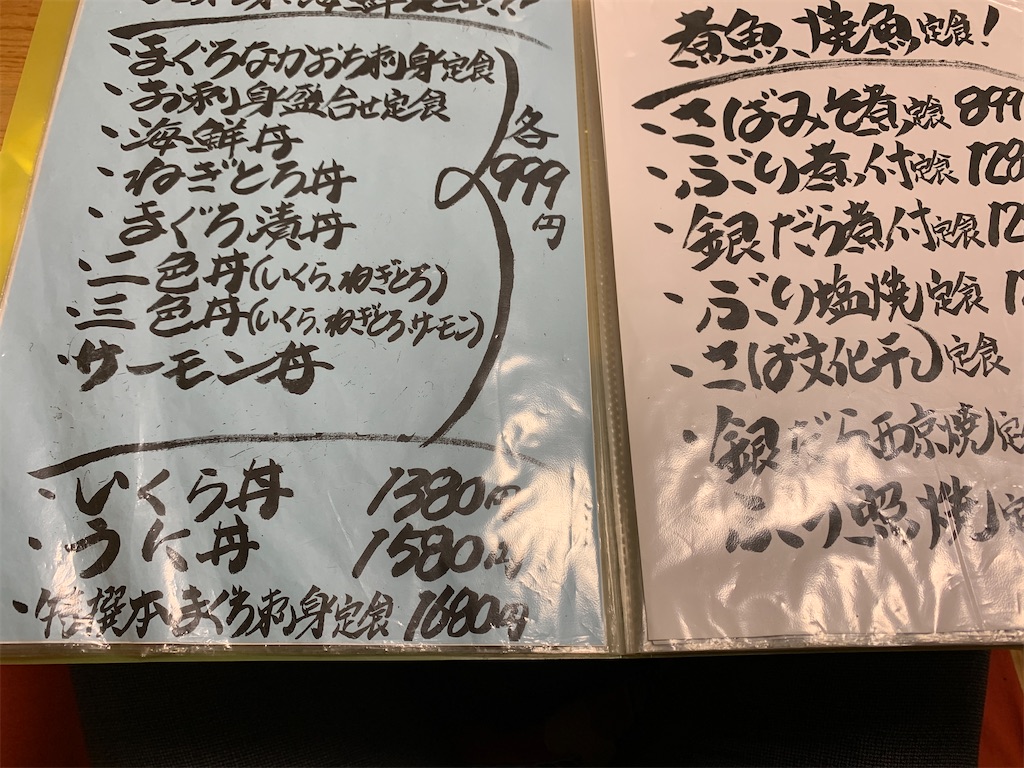 ・まぐろなかおち刺身定食
・お刺身盛合せ定食
・海鮮丼
・ねぎとろ丼
・まぐろ漬丼
・二色丼(いくら、ねぎとろ)
・三色丼(いくら、ねぎとろ、サーモン)
・サーモン丼
各
999
円
・いくら丼 1380円
・うに丼 1580円
・特撰本まぐろ刺身定食 1680円
煮魚、焼魚定食!
・さばみそ煮定食 899
・ぶり煮付定食 128
・銀だら煮付定食 12
・ぶり塩焼定食 1
・さば文化干し定食
・銀だら西京焼定
ぶり照焼定